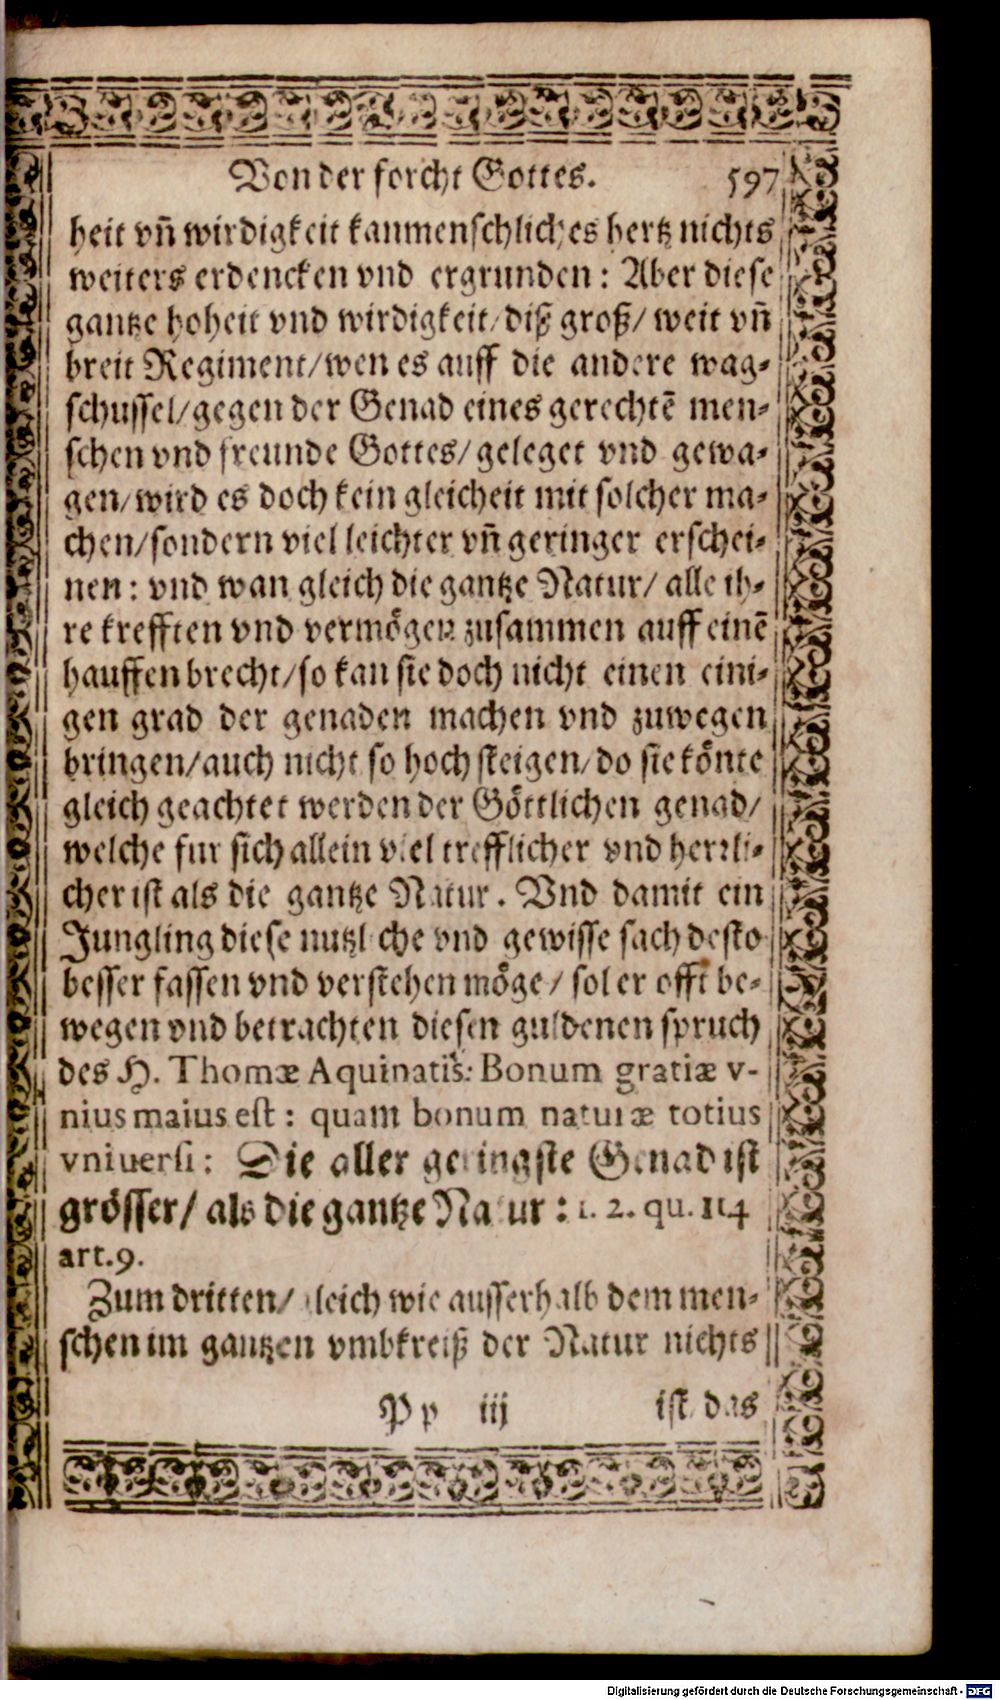 Von der forcht Gottes. 597
heit vn̄ wirdigkeit kanmenschliches hertz nichts
weiters erdencken vnd ergrunden: Aber diese
gantze hoheit vnd wirdigkeit/diß groß/weit vn̄
breit Regiment/wen es auff die andere wag-
schussel/gegen der Genad eines gerechtē men-
schen vnd freunde Gottes/geleget vnd gewa-
gen/wird es doch kein gleicheit mit solcher ma-
chen/sondern viel leichter vn̄ geringer erschei-
nen: vnd wan gleich die gantze Natur/alle ih-
re krefften vnd vermögen zusammen auff einē
hauffen brecht/so kan sie doch nicht einen eini-
gen grad der genaden machen vnd zuwegen
bringen/auch nicht so hoch steigen/do sie könte
gleich geachtet werden der Göttlichen genad/
welche fur sich allein viel trefflicher vnd herrli-
cher ist als die gantze Natur. Vnd damit ein
Jungling diese nutzliche vnd gewisse sach desto
besser fassen vnd verstehen möge/sol er offt be-
wegen vnd betrachten diesen guldenen spruch
des H. Thomæ Aquinatis: Bonum gratiæ v-
nius maius est: quam bonum naturæ totius
vniuersi: Die aller geringste Genad ist
grösser/als die gantze Natur: 1. 2. qu. 114
art.9.
Zum dritten/gleich wie ausserhalb dem men-
schen im gantzen vmbkreiß der Natur nichts
Pp iij ist das
Digitalisierung gefördert durch die Deutsche Forschungsgemeinschaft - DFG